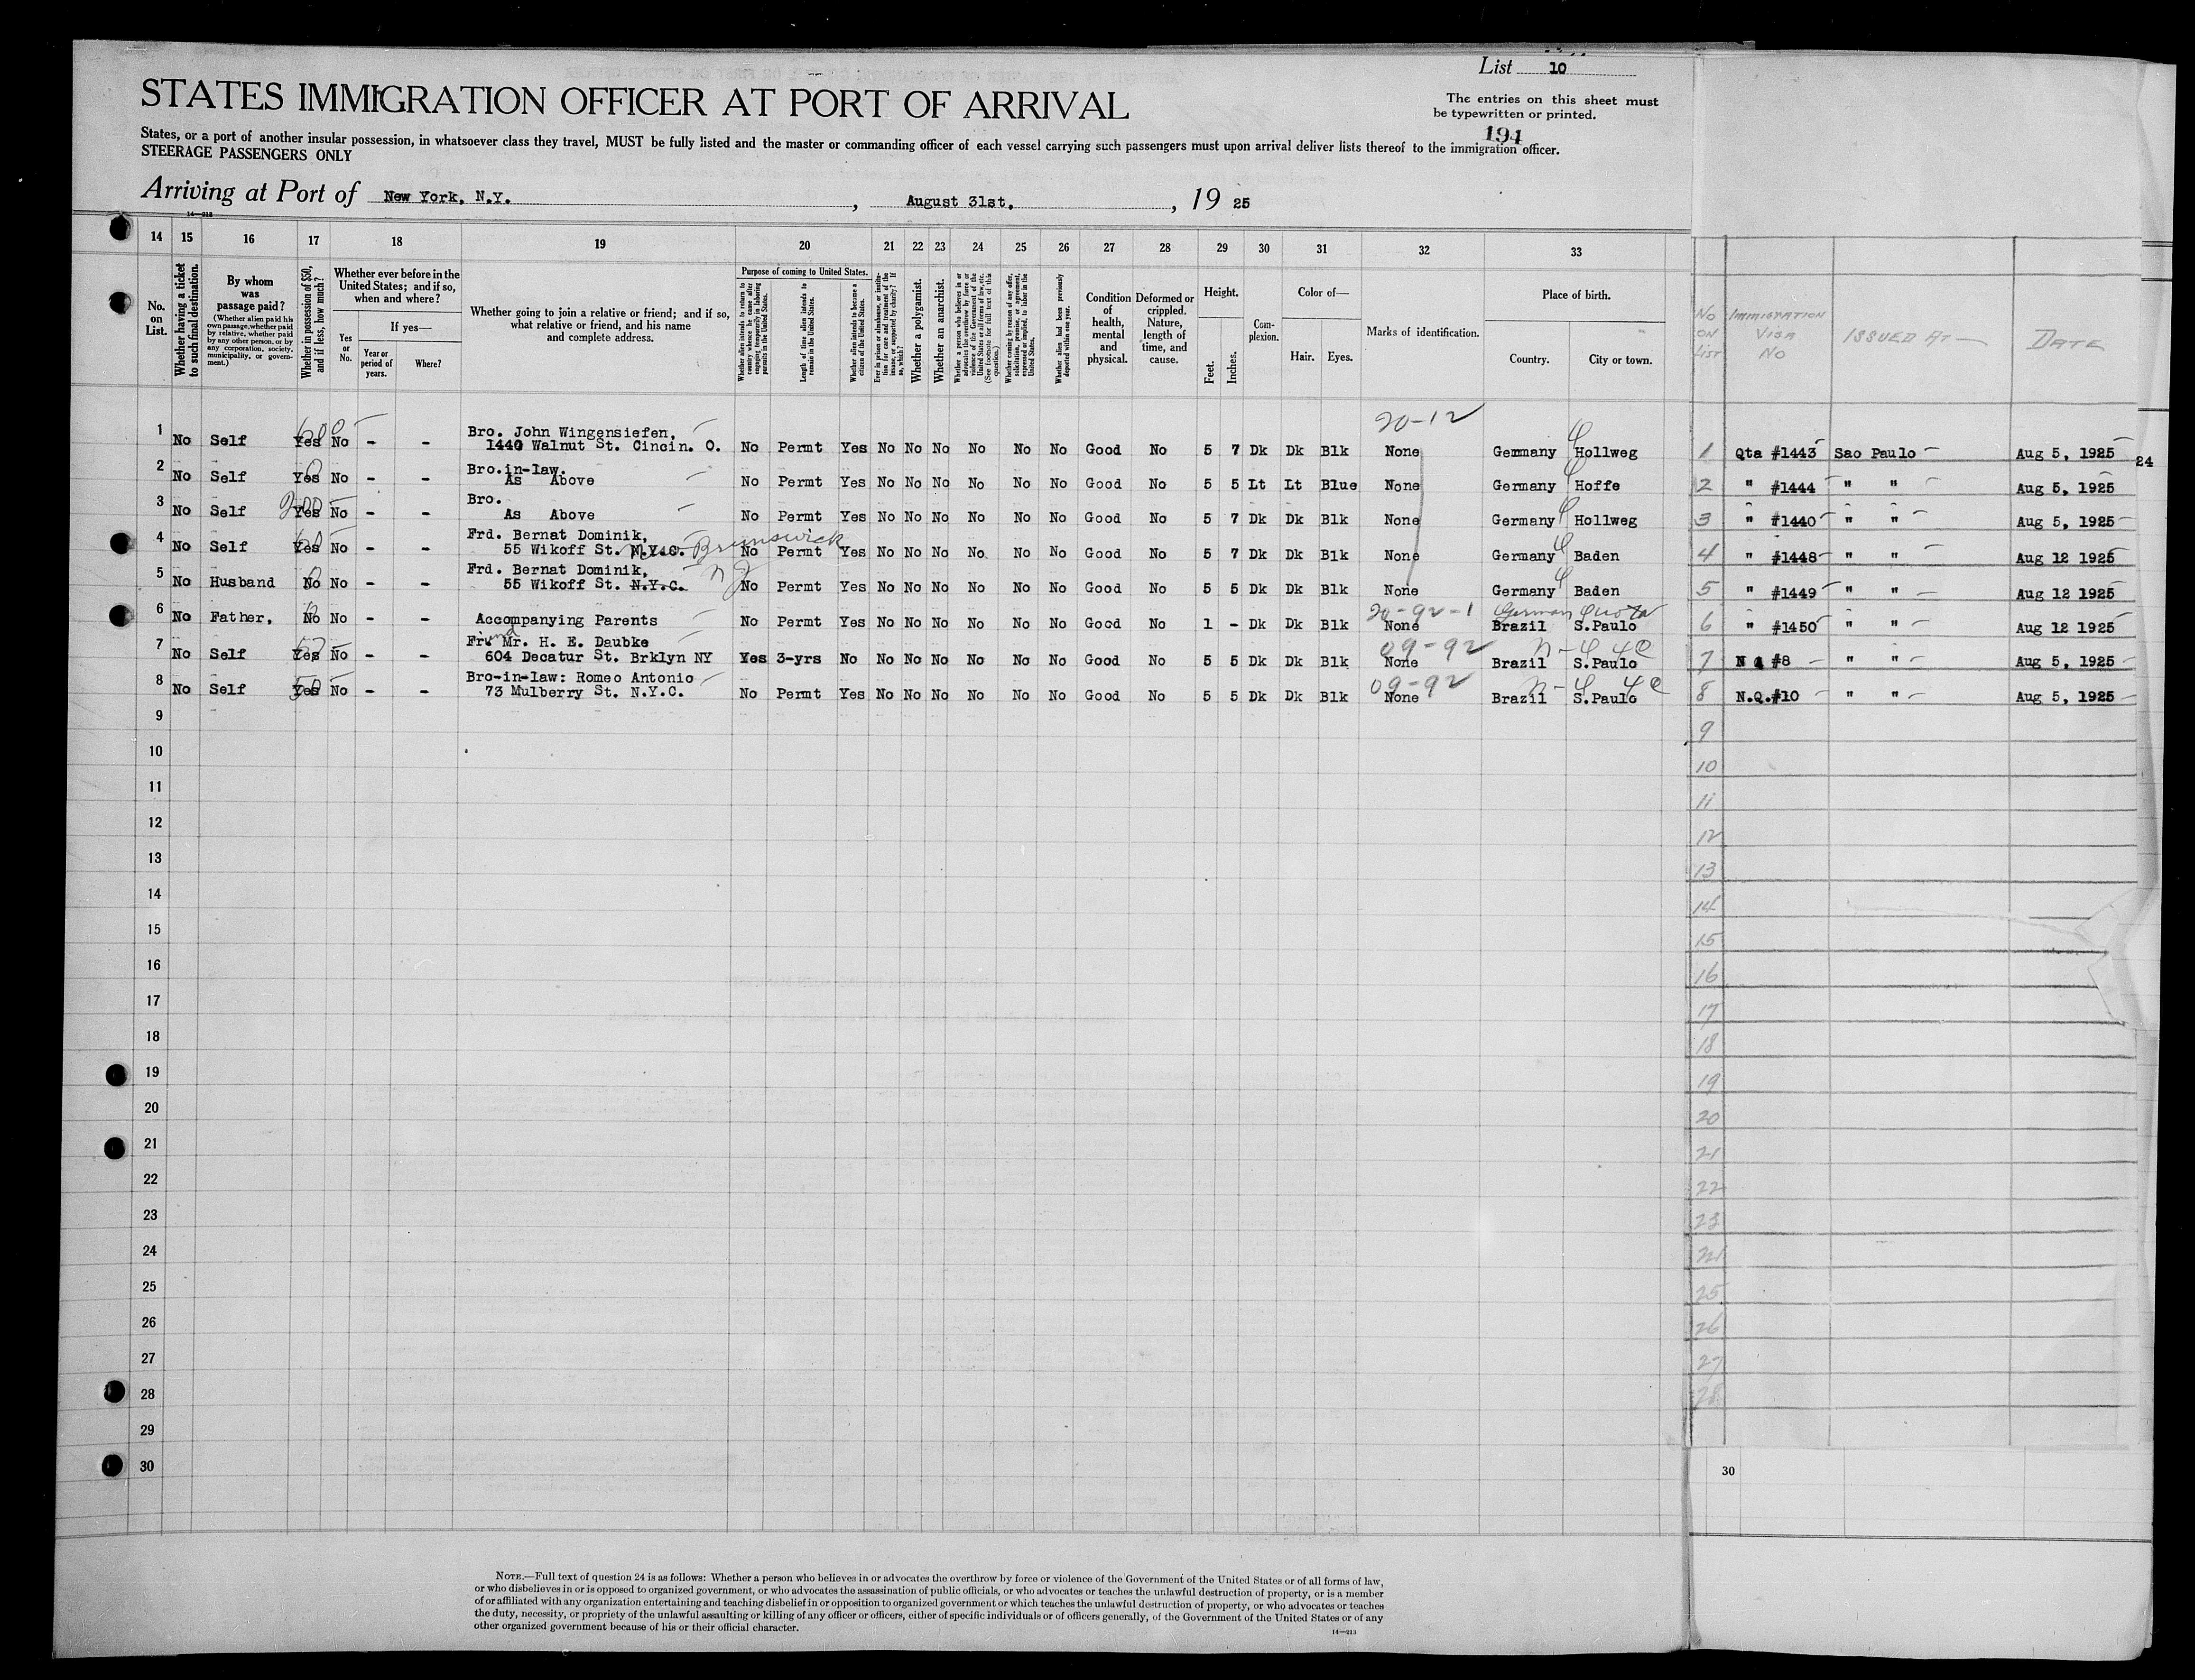 List 10
STATES IMMIGRATION OFFICER AT PORT OF ARRIVAL
The entries on this sheet must
be typewritten or printed.
194
States, or a port of another insular possession, in whatsoever class they travel, MUST be fully listed and the master or commanding officer of each vessel carrying such passengers must upon arrival deliver lists thereof to the immigration officer.
STEERAGE PASSENGERS ONLY
Arriving at Port of New York, N.Y. , August 31st. , 19 25
14—213
14 15 16 17 18 19 20 21 22 23 24 25 26 27 28 29 30 31 32 33
No. on List.
Whether having a ticket to such final destination.
By whom was passage paid?
(Whether alien paid his own passage, whether paid by relative, whether paid by any other person, or by any corporation, society, municipality, or government.)
Whether in possession of $50, and if less, how much?
Whether ever before in the United States; and if so, when and where?
Yes or No.
If yes—
Year or period of years.
Where?
Whether going to join a relative or friend; and if so, what relative or friend, and his name and complete address.
Purpose of coming to United States.
Whether alien intends to return to country whence he came after engaging temporarily in laboring pursuits in the United States.
Length of time alien intends to remain in the United States.
Whether alien intends to become a citizen of the United States.
Ever in prison or almshouse, or institution for care and treatment of the insane, or supported by charity? If so, which?
Whether a polygamist.
Whether an anarchist.
Whether a person who believes in or advocates the overthrow by force or violence of the Government of the United States or all forms of law, etc. (See footnote for full text of this question.)
Whether coming by reason of any offer, solicitation, promise, or agreement, expressed or implied, to labor in the United States.
Whether alien had been previously deported within one year.
Condition of health, mental and physical.
Deformed or crippled. Nature, length of time, and cause.
Height.
Feet. Inches.
Complexion.
Color of—
Hair. Eyes.
Marks of identification.
Place of birth.
Country. City or town.
No on List
Immigration Visa No
Issued At —
Date
20-12
1 No Self Yes No - - Bro. John Wingensiefen, 1440 Walnut St. Cincin. O. No Permt Yes No No No No No No Good No 5 7 Dk Dk Blk None Germany Hollweg 1 Qta #1443 Sao Paulo — Aug 5, 1925 24
2 No Self Yes No - - Bro.in-law. As Above No Permt Yes No No No No No No Good No 5 5 Lt Lt Blue None Germany Hoffe 2 " #1444 " " Aug 5, 1925
3 No Self 200 Yes No - - Bro. As Above No Permt Yes No No No No No No Good No 5 7 Dk Dk Blk None Germany Hollweg 3 " #1440 " " Aug 5, 1925
4 No Self Yes No - - Frd. Bernat Dominik, 55 Wikoff St. N.Y.C. Brunswick No Permt Yes No No No No No No Good No 5 7 Dk Dk Blk None Germany Baden 4 " #1448 " " Aug 12 1925
5 No Husband 0 No No - - Frd. Bernat Dominik, 55 Wikoff St. N.Y.C. NJ No Permt Yes No No No No No No Good No 5 5 Dk Dk Blk None Germany Baden 5 " #1449 " " Aug 12 1925
20-92-1 German Quota
6 No Father, No No - - Accompanying Parents No Permt Yes No No No No No No Good No 1 - Dk Dk Blk None Brazil S.Paulo 6 " #1450 " " Aug 12 1925
09-92 N-Q 4c
7 No Self Yes No - - Friend Mr. H. E. Daubke 604 Decatur St. Brklyn NY Yes 3-yrs No No No No No No No Good No 5 5 Dk Dk Blk None Brazil S.Paulo 7 N Q #8 " " Aug 5, 1925
09-92 N-Q 4c
8 No Self 50 Yes No - - Bro-in-law: Romeo Antonio 73 Mulberry St. N.Y.C. No Permt Yes No No No No No No Good No 5 5 Dk Dk Blk None Brazil S.Paulo 8 N.Q.#10 " " Aug 5, 1925
9 9
10 10
11 11
12 12
13 13
14 14
15 15
16 16
17 17
18 18
19 19
20 20
21 21
22 22
23 23
24 24
25 25
26 26
27 27
28 28
29
30 30
NOTE.—Full text of question 24 is as follows: Whether a person who believes in or advocates the overthrow by force or violence of the Government of the United States or of all forms of law,
or who disbelieves in or is opposed to organized government, or who advocates the assassination of public officials, or who advocates or teaches the unlawful destruction of property, or is a member
of or affiliated with any organization entertaining and teaching disbelief in or opposition to organized government or which teaches the unlawful destruction of property, or who advocates or teaches
the duty, necessity, or propriety of the unlawful assaulting or killing of any officer or officers, either of specific individuals or of officers generally, of the Government of the United States or of any
other organized government because of his or their official character.
14—213